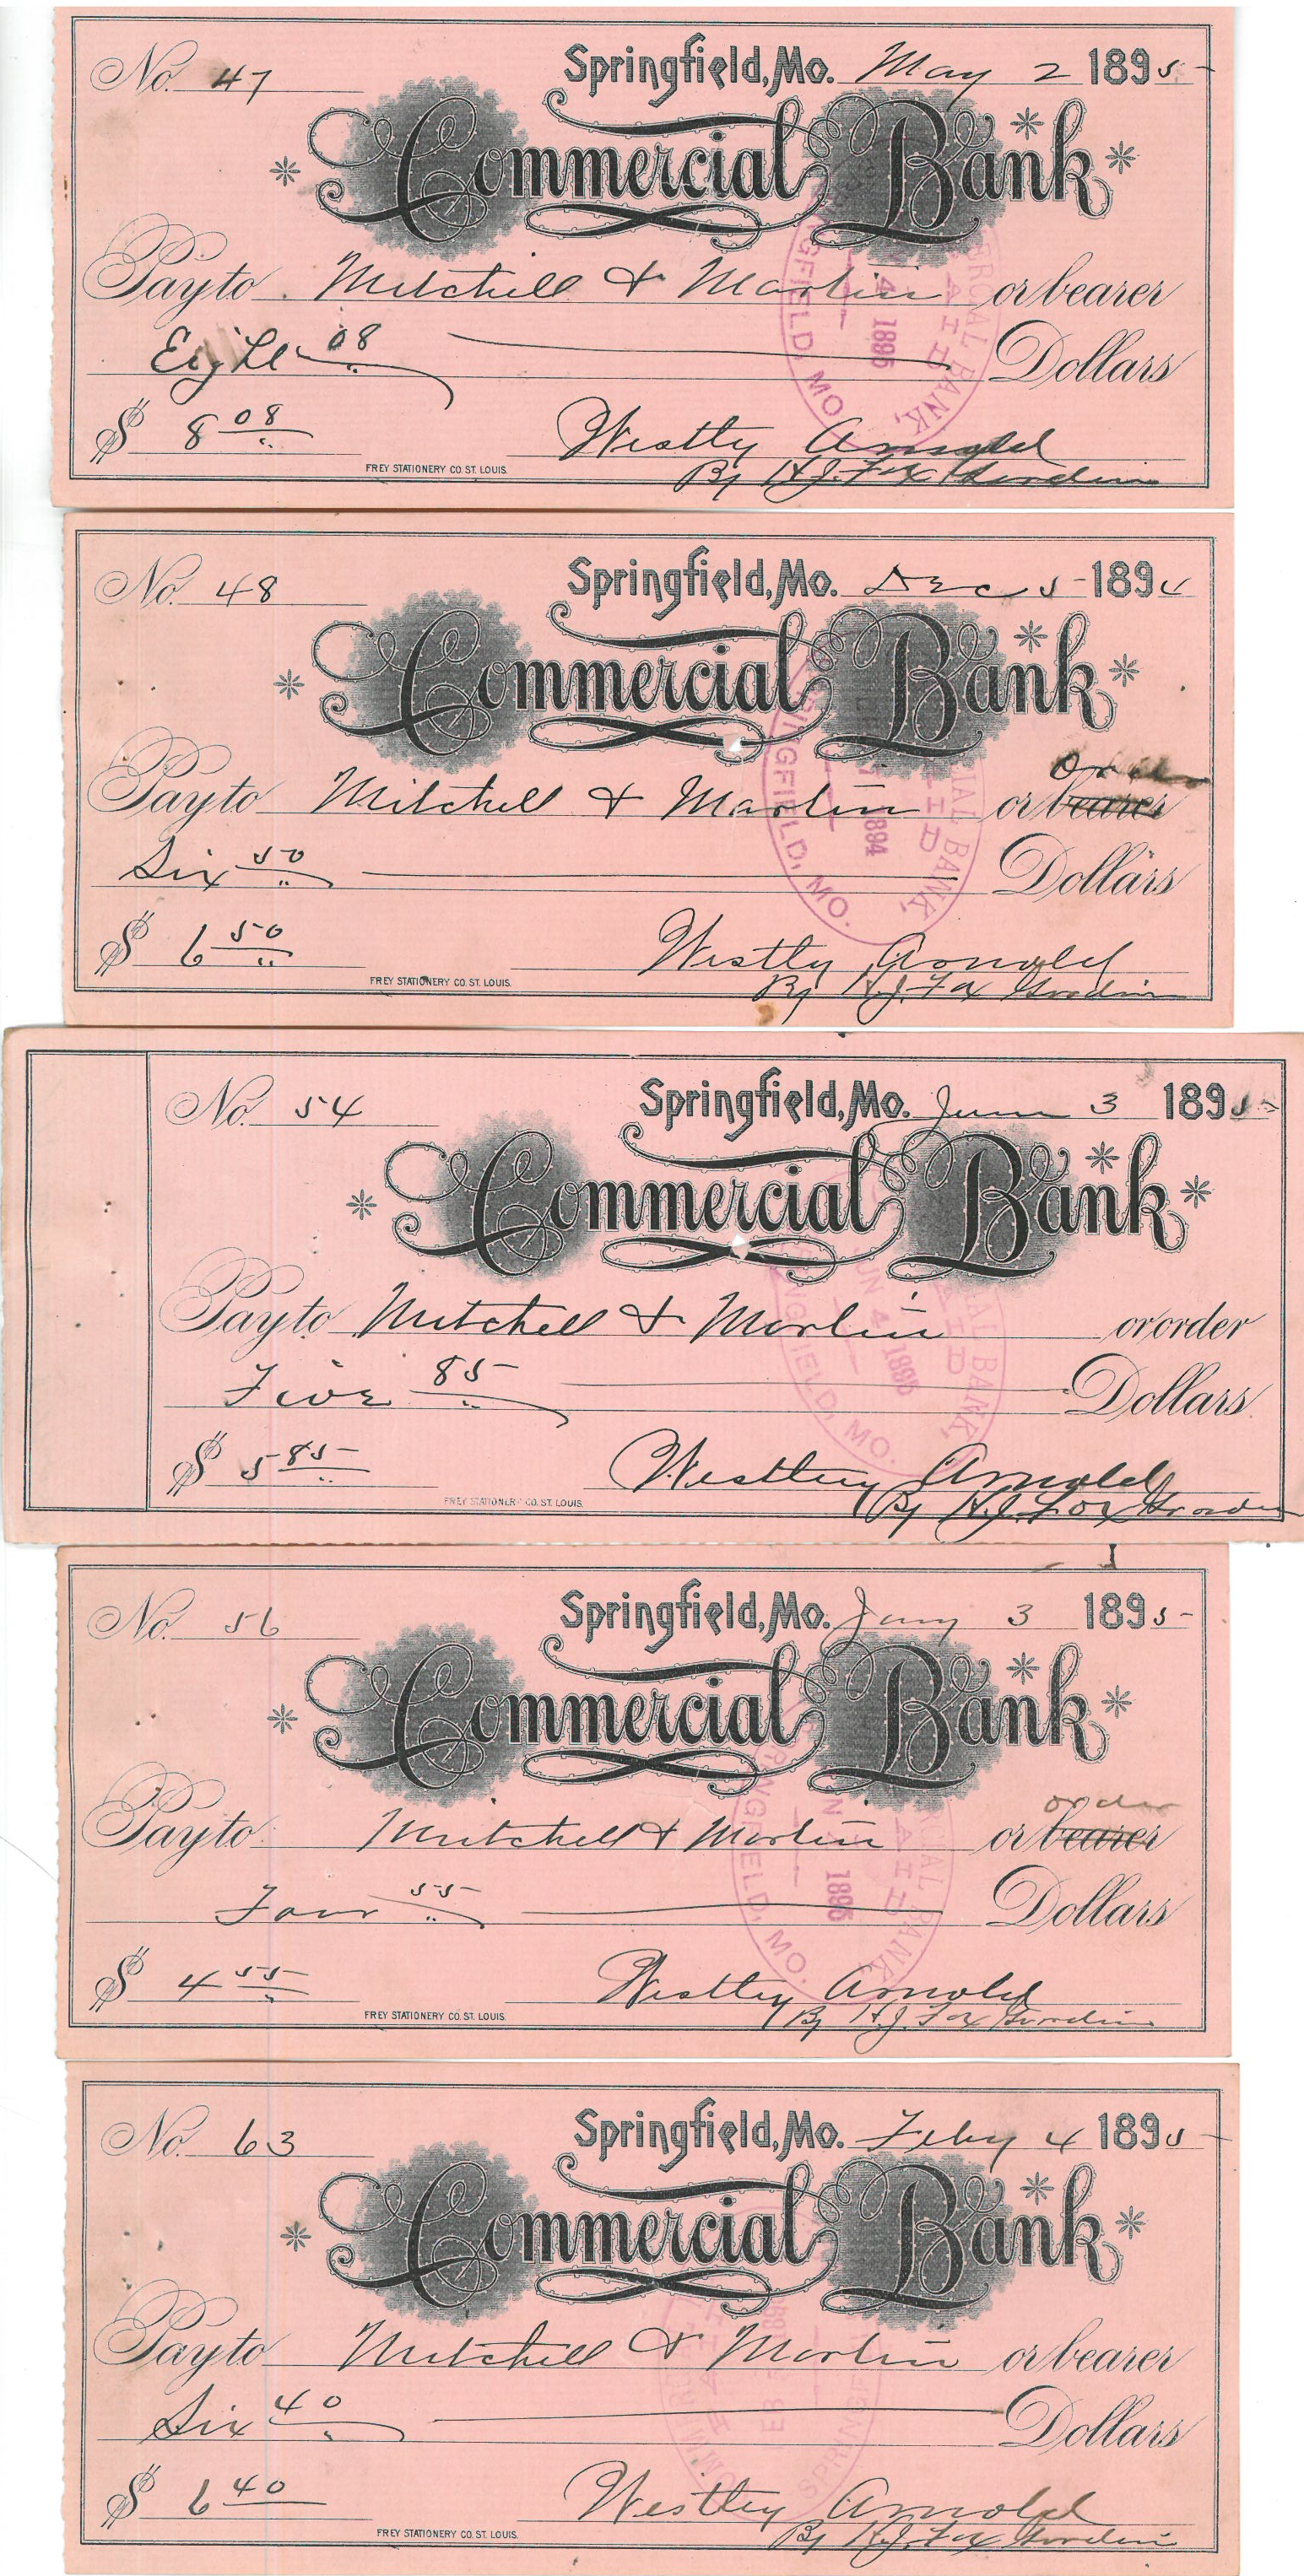 No. 47 Springfield, Mo. May 2 1895
Commercial Bank
Pay to Mitchell & Martin or bearer
Eight 08 Dollars
$ 8 08 Westley Arnold
FREY STATIONERY CO. ST. LOUIS. By H.J. Fox Guardian
COMMERCIAL BANK, PAID 4 1895 SPRINGFIELD, MO.
No. 48 Springfield, Mo. Dec 5 1894
Commercial Bank
order
Pay to Mitchell & Martin or bearer
Six 50 Dollars
$ 6 50 Westly Arnold
FREY STATIONERY CO. ST. LOUIS. By H.J. Fox Guardian
BANK, PAID 1894 SPRINGFIELD, MO.
No. 54 Springfield, Mo. June 3 1895
Commercial Bank
Pay to Mitchell & Martin or order
Five 85 Dollars
$ 5 85 Westley Arnold
FREY STATIONERY CO. ST. LOUIS. By H.J. Fox Guardian
BANK, PAID JUN 4 1895 SPRINGFIELD, MO.
No. 56 Springfield, Mo. Jany 3 1895
Commercial Bank
order
Pay to Mitchell & Martin or bearer
Four 55 Dollars
$ 4 55 Westley Arnold
FREY STATIONERY CO. ST. LOUIS. By H.J. Fox Guardian
BANK, PAID 1895 SPRINGFIELD, MO.
No. 63 Springfield, Mo. Feby 4 1895
Commercial Bank
Pay to Mitchell & Martin or bearer
Six 40 Dollars
$ 6 40 Westley Arnold
FREY STATIONERY CO. ST. LOUIS. By H.J. Fox Guardian